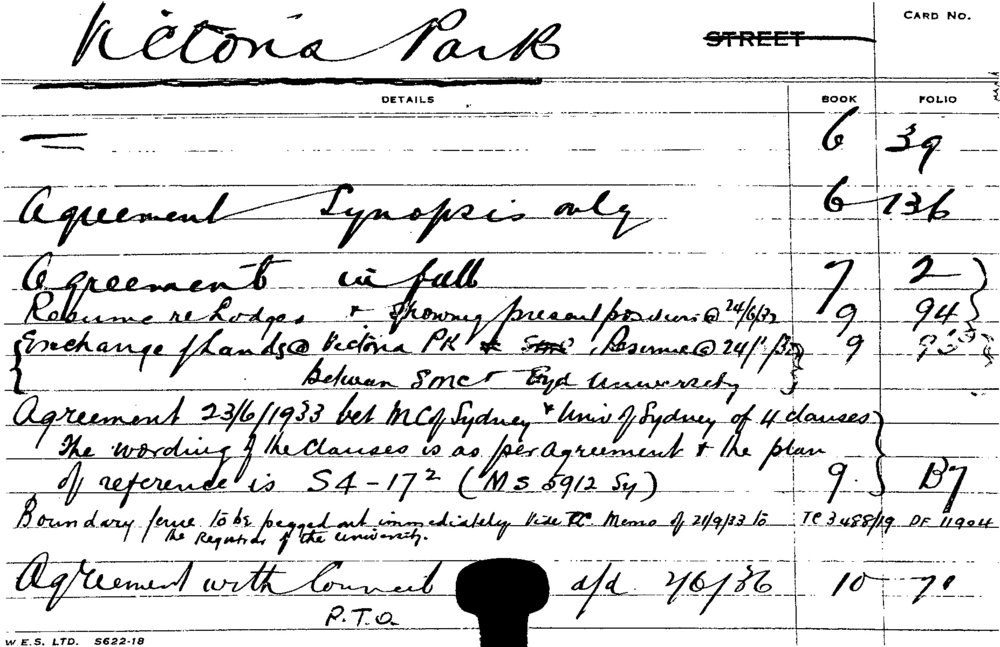 Victoria Park STREET CARD NO.
DETAILS BOOK FOLIO
6 39
Agreement Synopsis only 6 136
Agreement in full 7 2
Resume re Lodges + Showing present position @ 24/6/32 9 94
Exchange of Lands @ Victoria PK Resume @ 9
between SMC & Syd University
Agreement 23/6/1933 bet MC of Sydney & Univ of Sydney of 4 clauses
The wording of the clauses is as per agreement & the plan
of reference is S4-17² (MS 5912 Sy) 9. B7
Boundary fence to be pegged out immediately Vide TC. Memo of 21/9/33 to TC 3488/19 DF 11904
the Registrar of the University.
Agreement with Council d/d 2/6/36 10 71
P.T.O.
W.E.S. LTD. S622-18